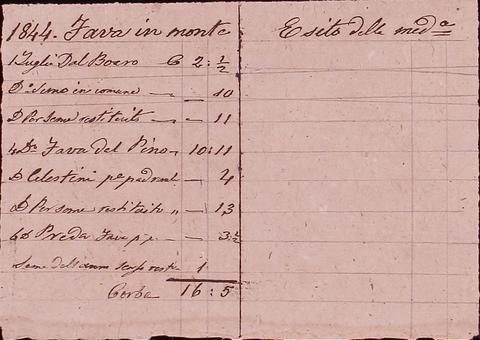 1844. Fava in monte
Esito della med.a
1 Luglio Dal Boaro C 2 : ½
D.o Seme in comune — 10
D Per Seme restituito — 11
4 D.o Fava del Pino 10 : 11
D Celestini p.e padronl — 4
D Per seme restituito „ — 13
6 D Preda Fava p.e — 3 ½
Seme dell'anno scorso 1
Corbe 16 : 5